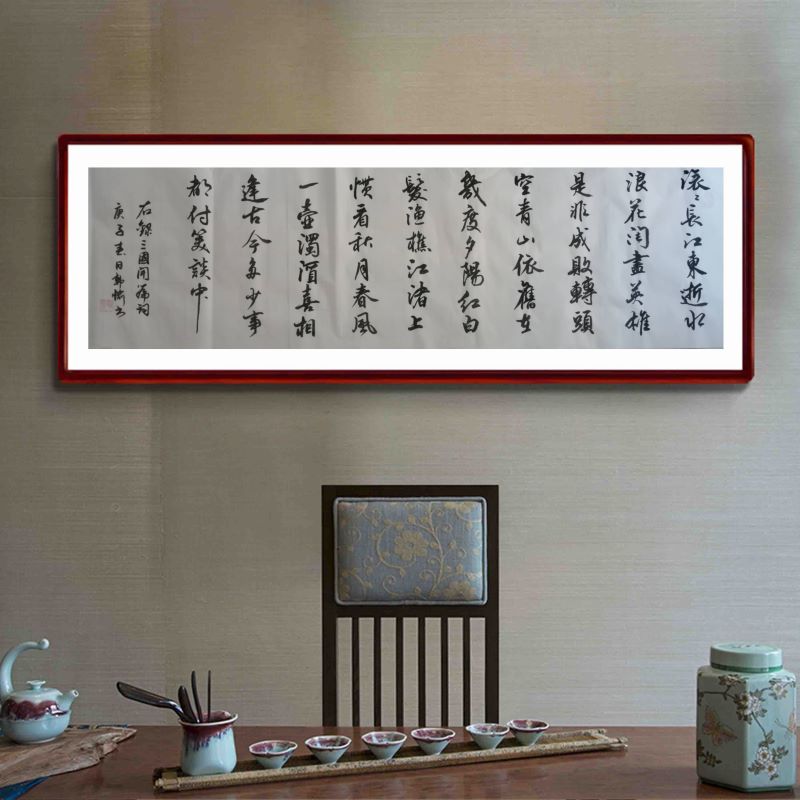 滚〻長江東逝水
浪花淘盡英雄
是非成敗轉頭
空青山依舊在
幾度夕陽紅白
髮漁樵江渚上
慣看秋月春風
一壺濁酒喜相
逢古今多少事
都付笑談中
右錄三國開篇詞
庚子春日书